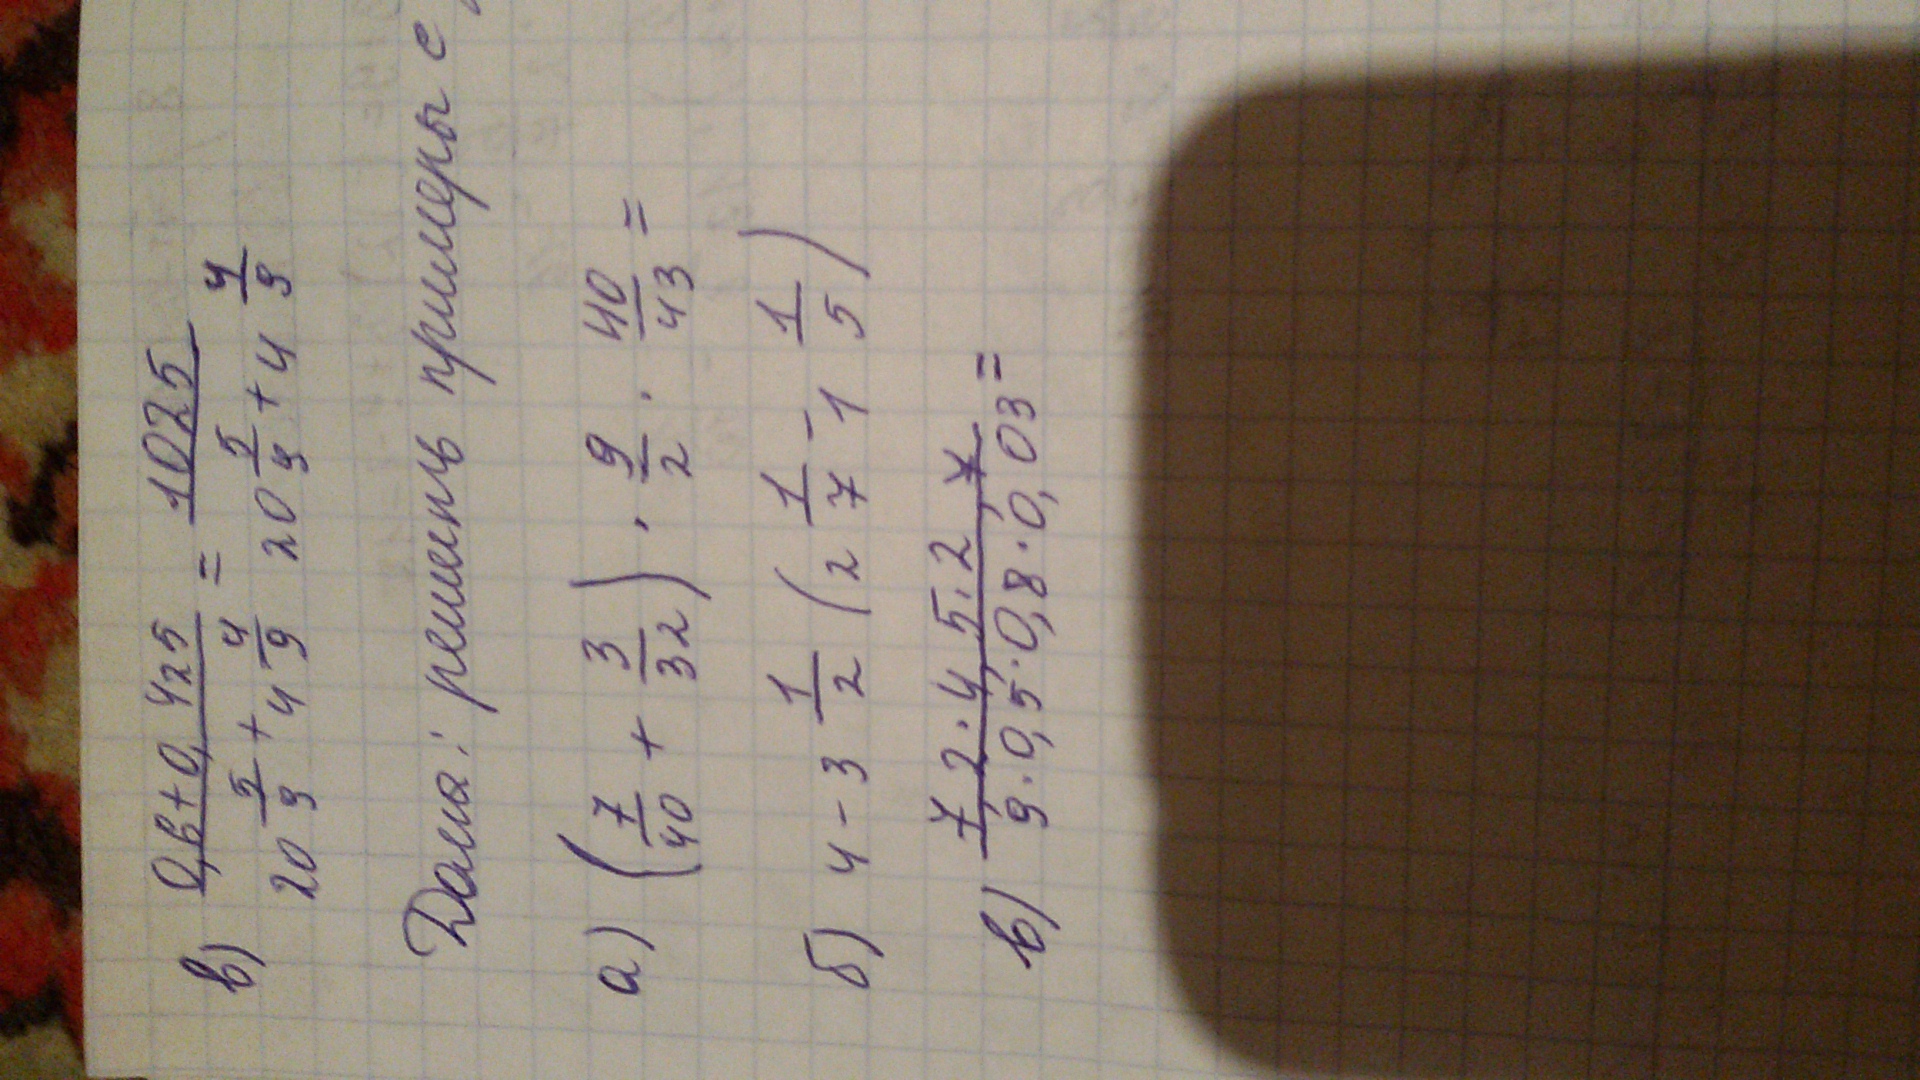 в) (0,6+0,425)/(20 5/9 + 4 4/9) = 1025/(20 5/9 + 4 4/9)
Дома: решить примеры с
а) (7/40 + 3/32) · 9/2 · 40/43 =
б) 4 - 3 1/2 (2 1/7 - 1 1/5)
в) 7,2·4,5·2,4/9·0,5·0,8·0,03 =